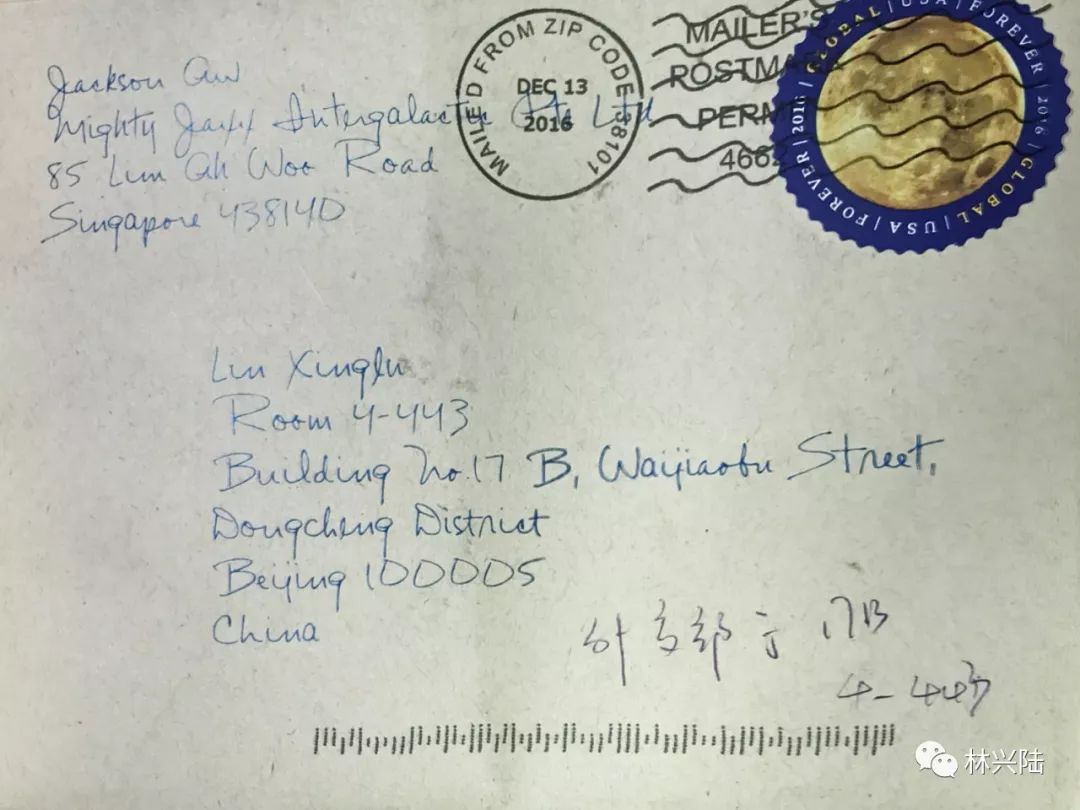 Jackson Aw
Mighty Jaxx Intergalactic Pte Ltd
85 Lim Ah Woo Road
Singapore 438140
MAILED FROM ZIP CODE 98101
DEC 13
2016
MAILER'S
POSTMARK
PERMIT
466
GLOBAL | USA | FOREVER | 2016 | GLOBAL | USA | FOREVER | 2016 |
Lin Xinglu
Room 4-443
Building No.17 B, Waijiaobu Street,
Dongcheng District
Beijing 100005
China
外交部 17B
4-443
林兴陆